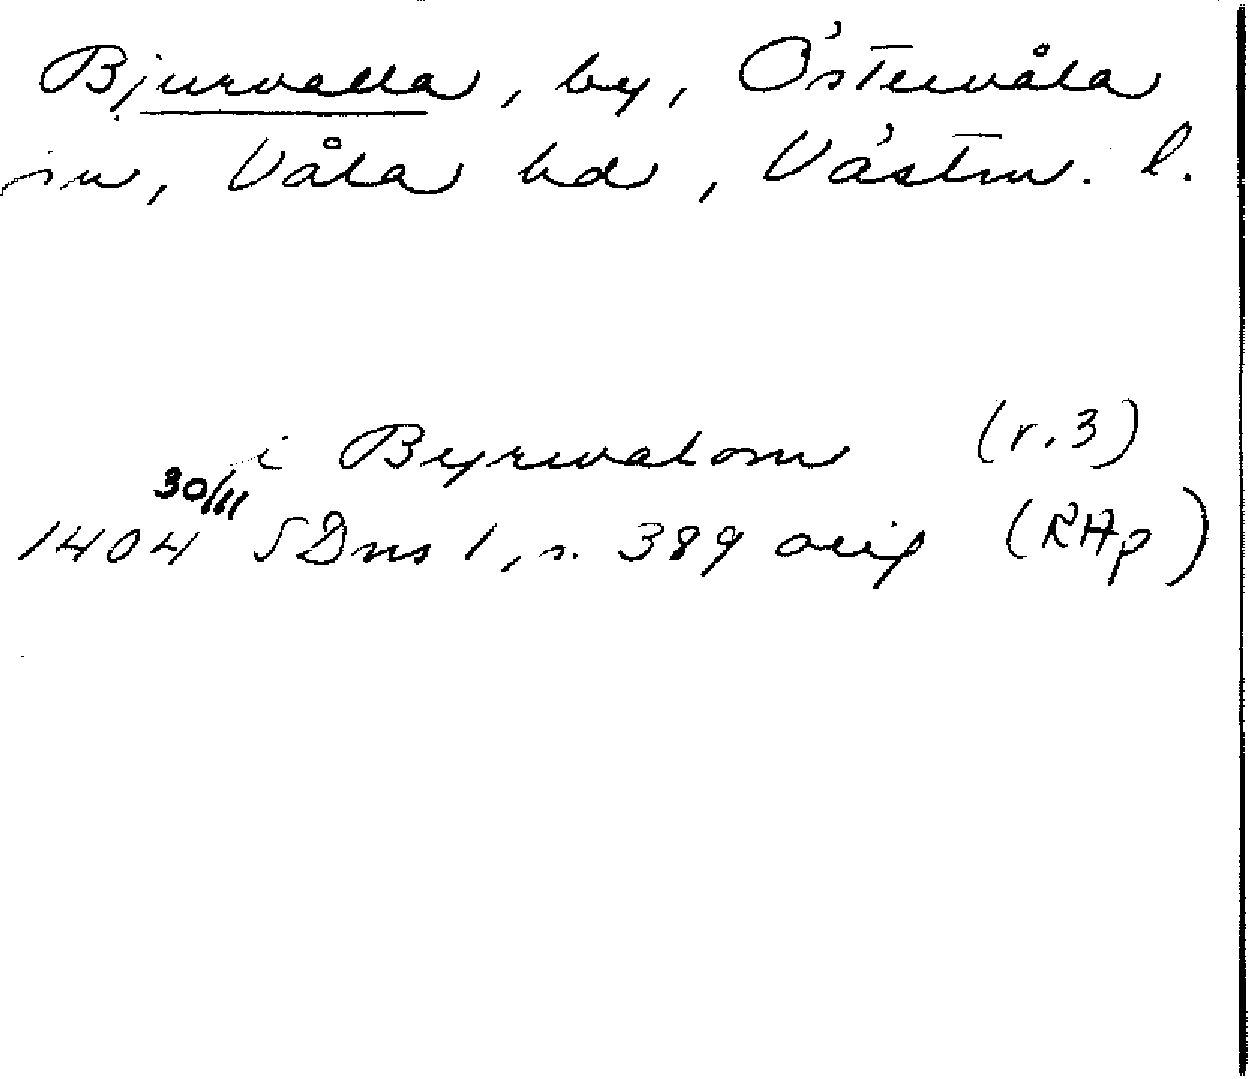 Bjurvalla, by, Östervåla
sn, Våla hd, Västm. l.
i Byrewalom (r. 3)
30/11
1404 SDns 1, s. 389 orig (RAp)